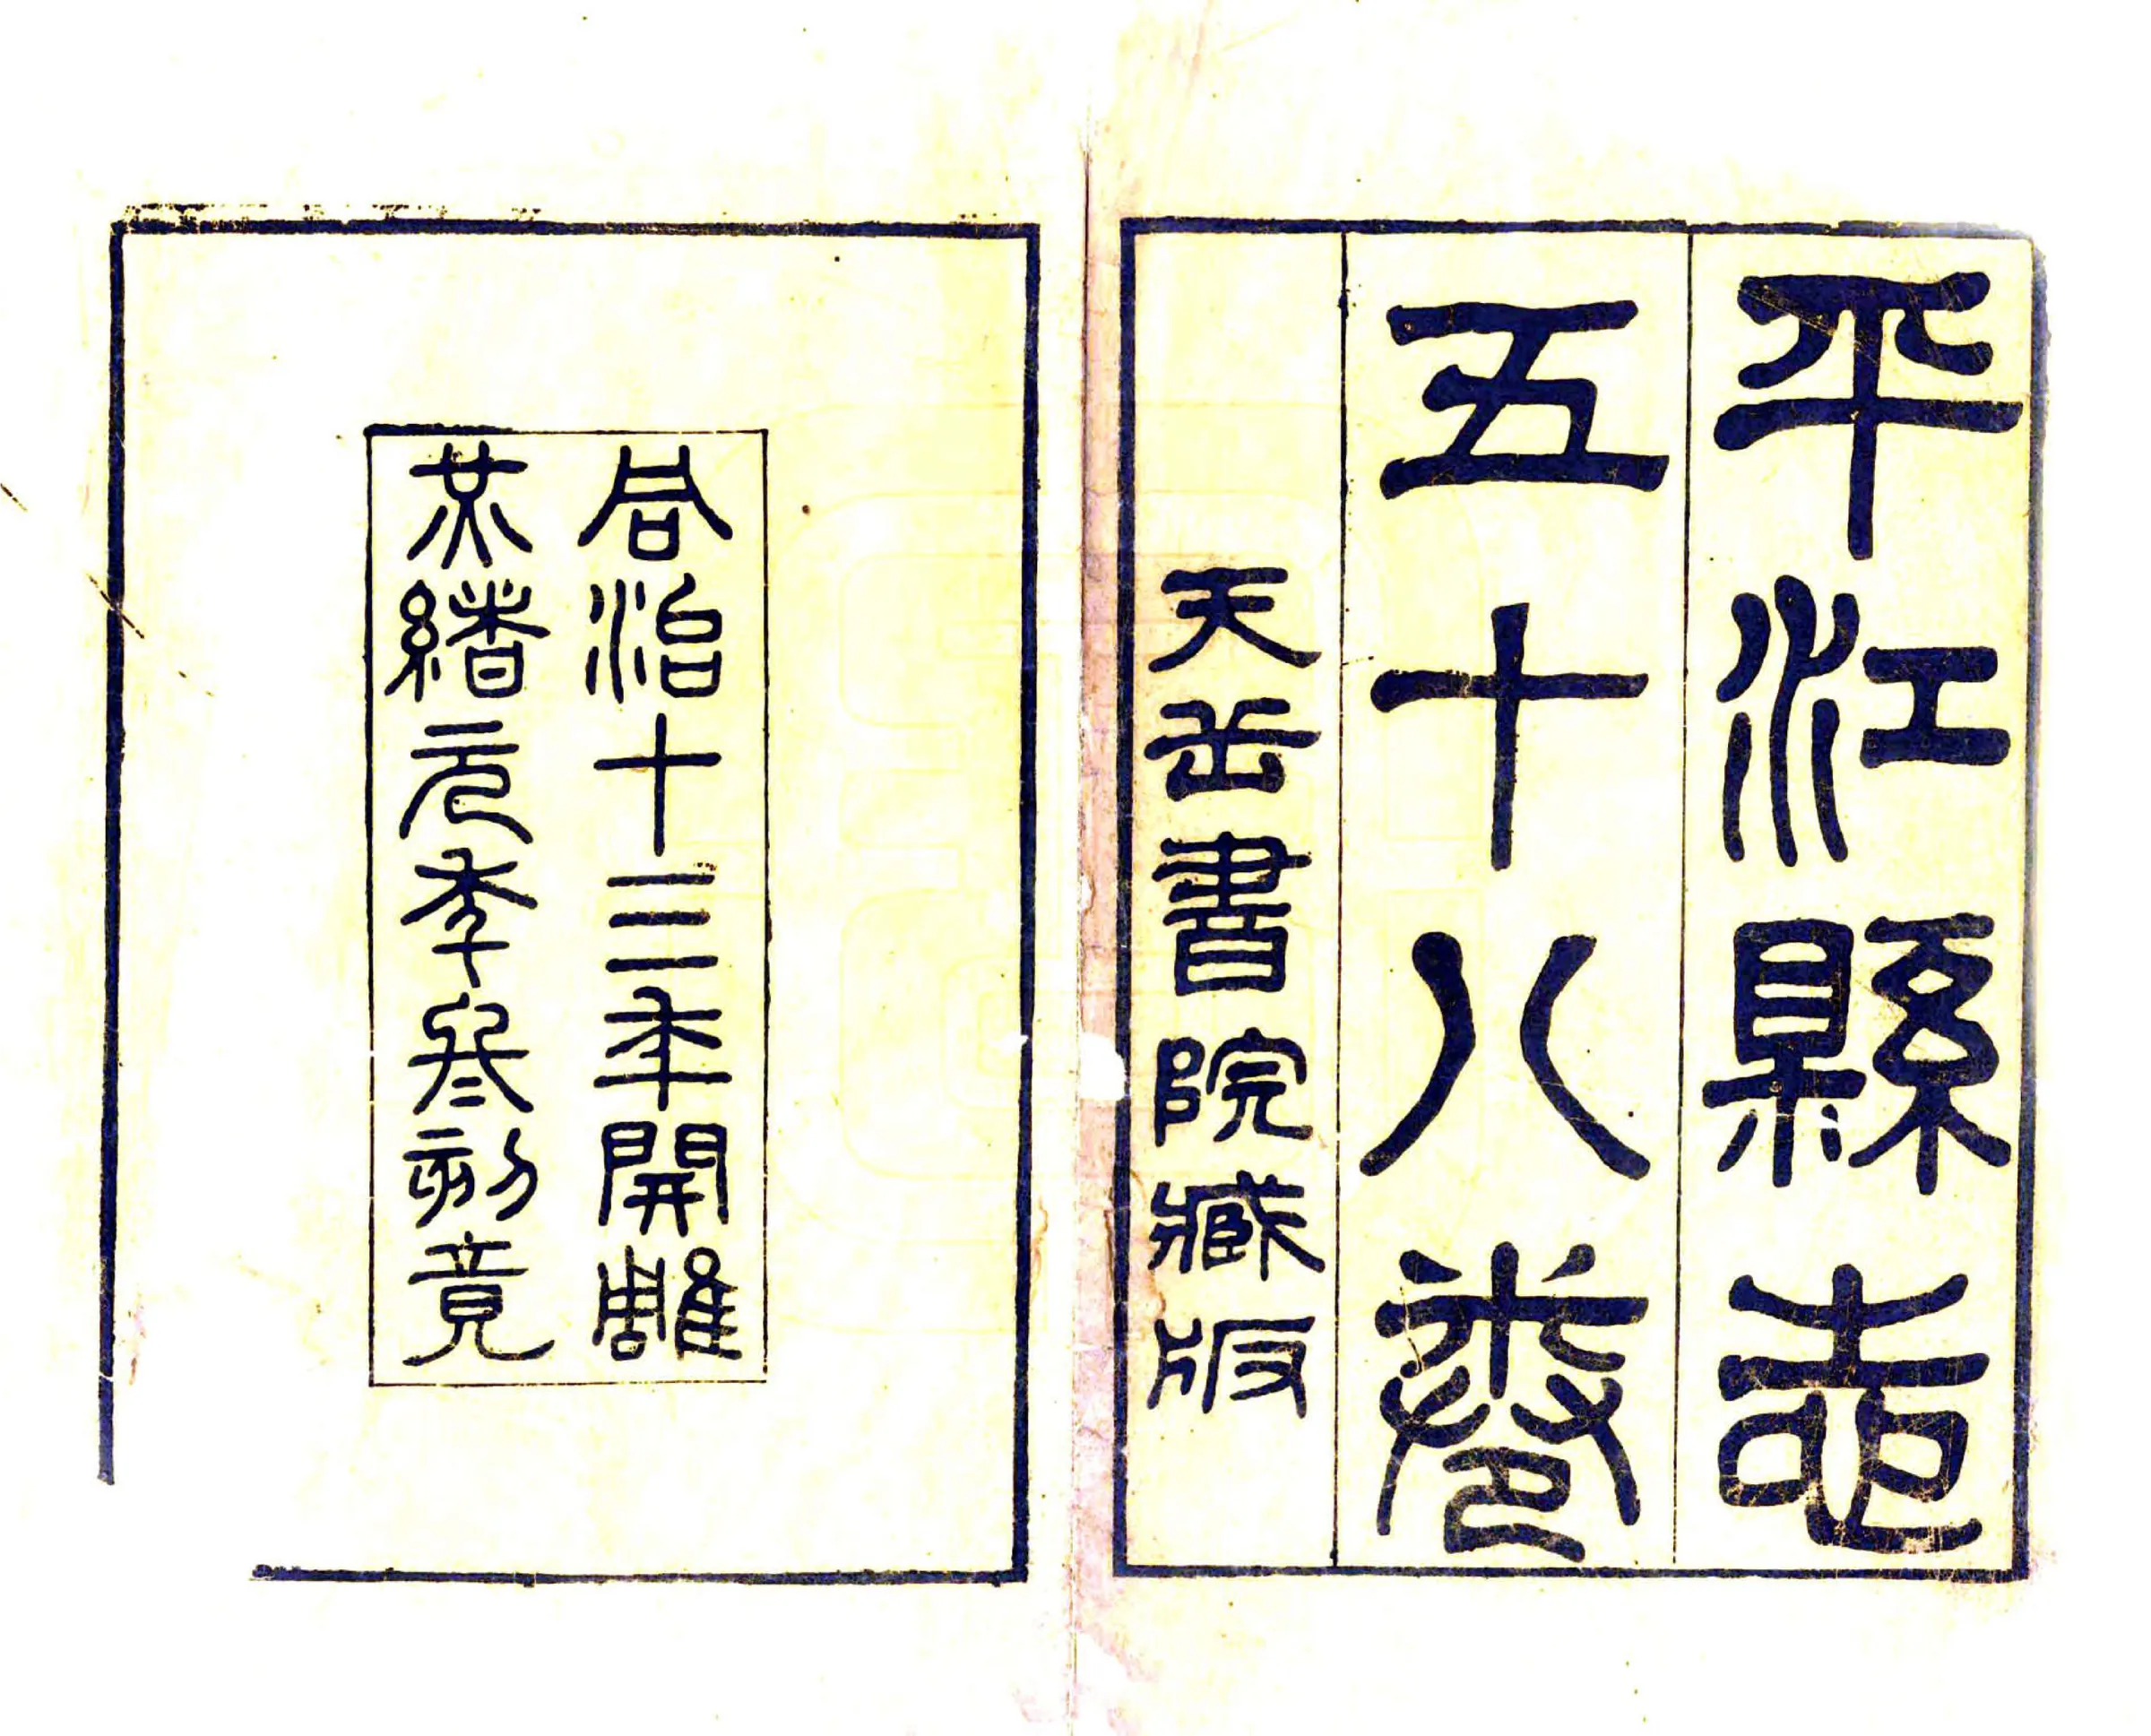 平江縣志
五十八卷
天岳書院藏版
同治十三年開雕
光緒元年冬刻竟